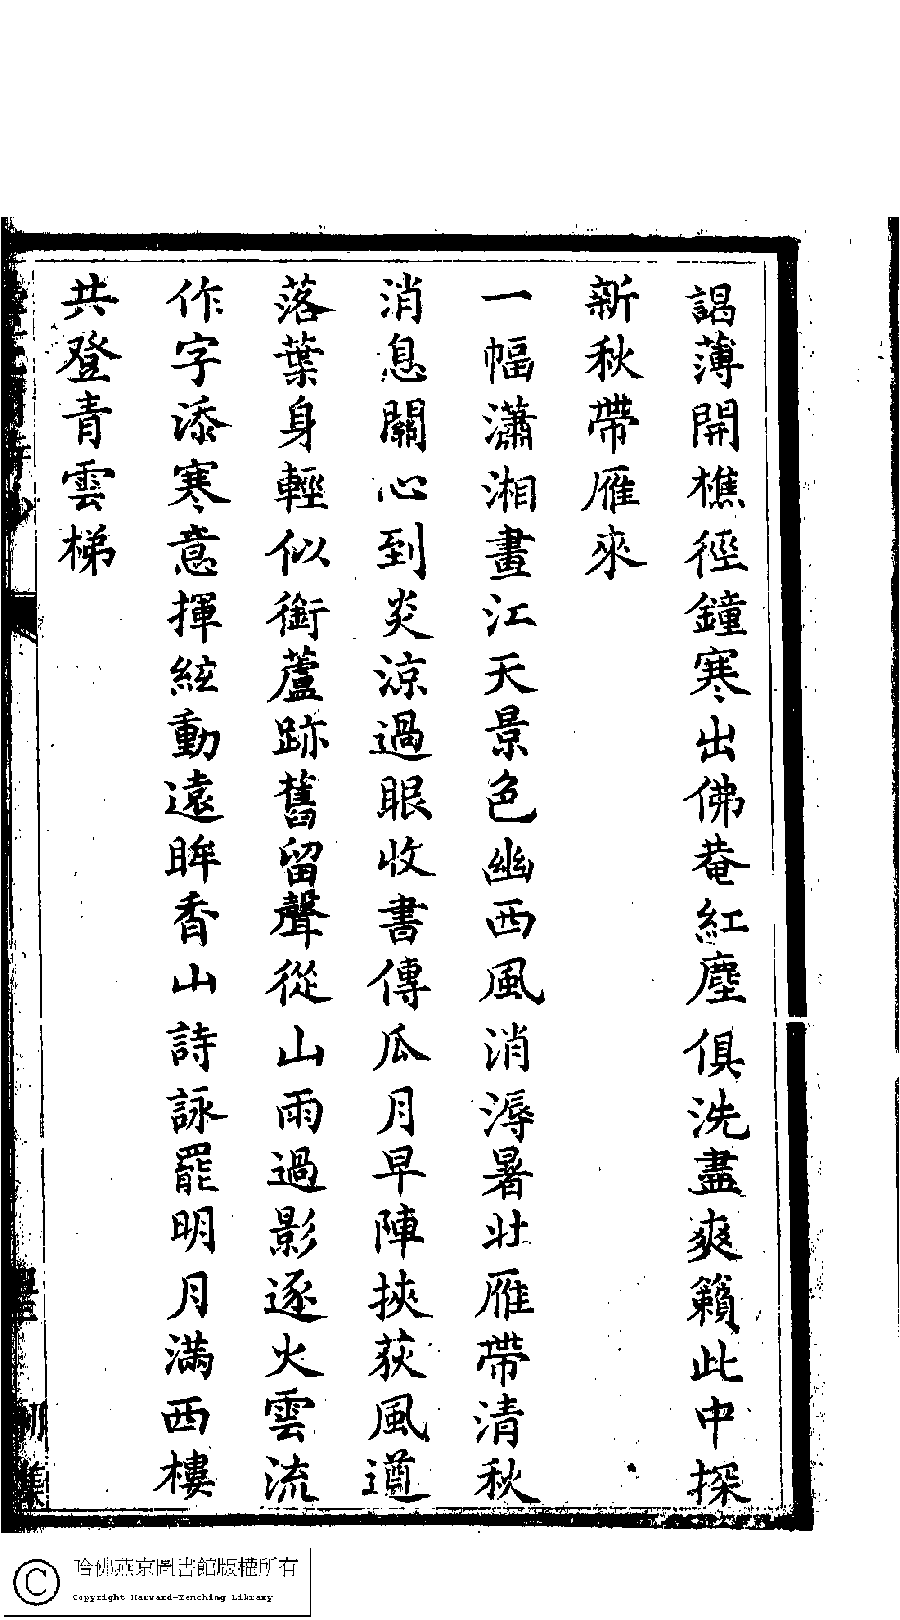 謁薄開樵徑鐘寒出佛菴紅塵俱洗盡爽籟此中探
新秋帶雁來
一幅瀟湘畫江天景色幽西風消溽暑壮雁帶清秋
消息關心到炎涼過眼收書傳瓜月早陣挾荻風遒
落葉身輕似銜蘆跡舊留聲從山雨過影逐火雲流
作字添寒意揮絃動遠眸香山詩詠罷明月滿西樓
共登青雲梯
初集
哈佛燕京圖書館版權所有
Copyright Harvard-Yenching Library